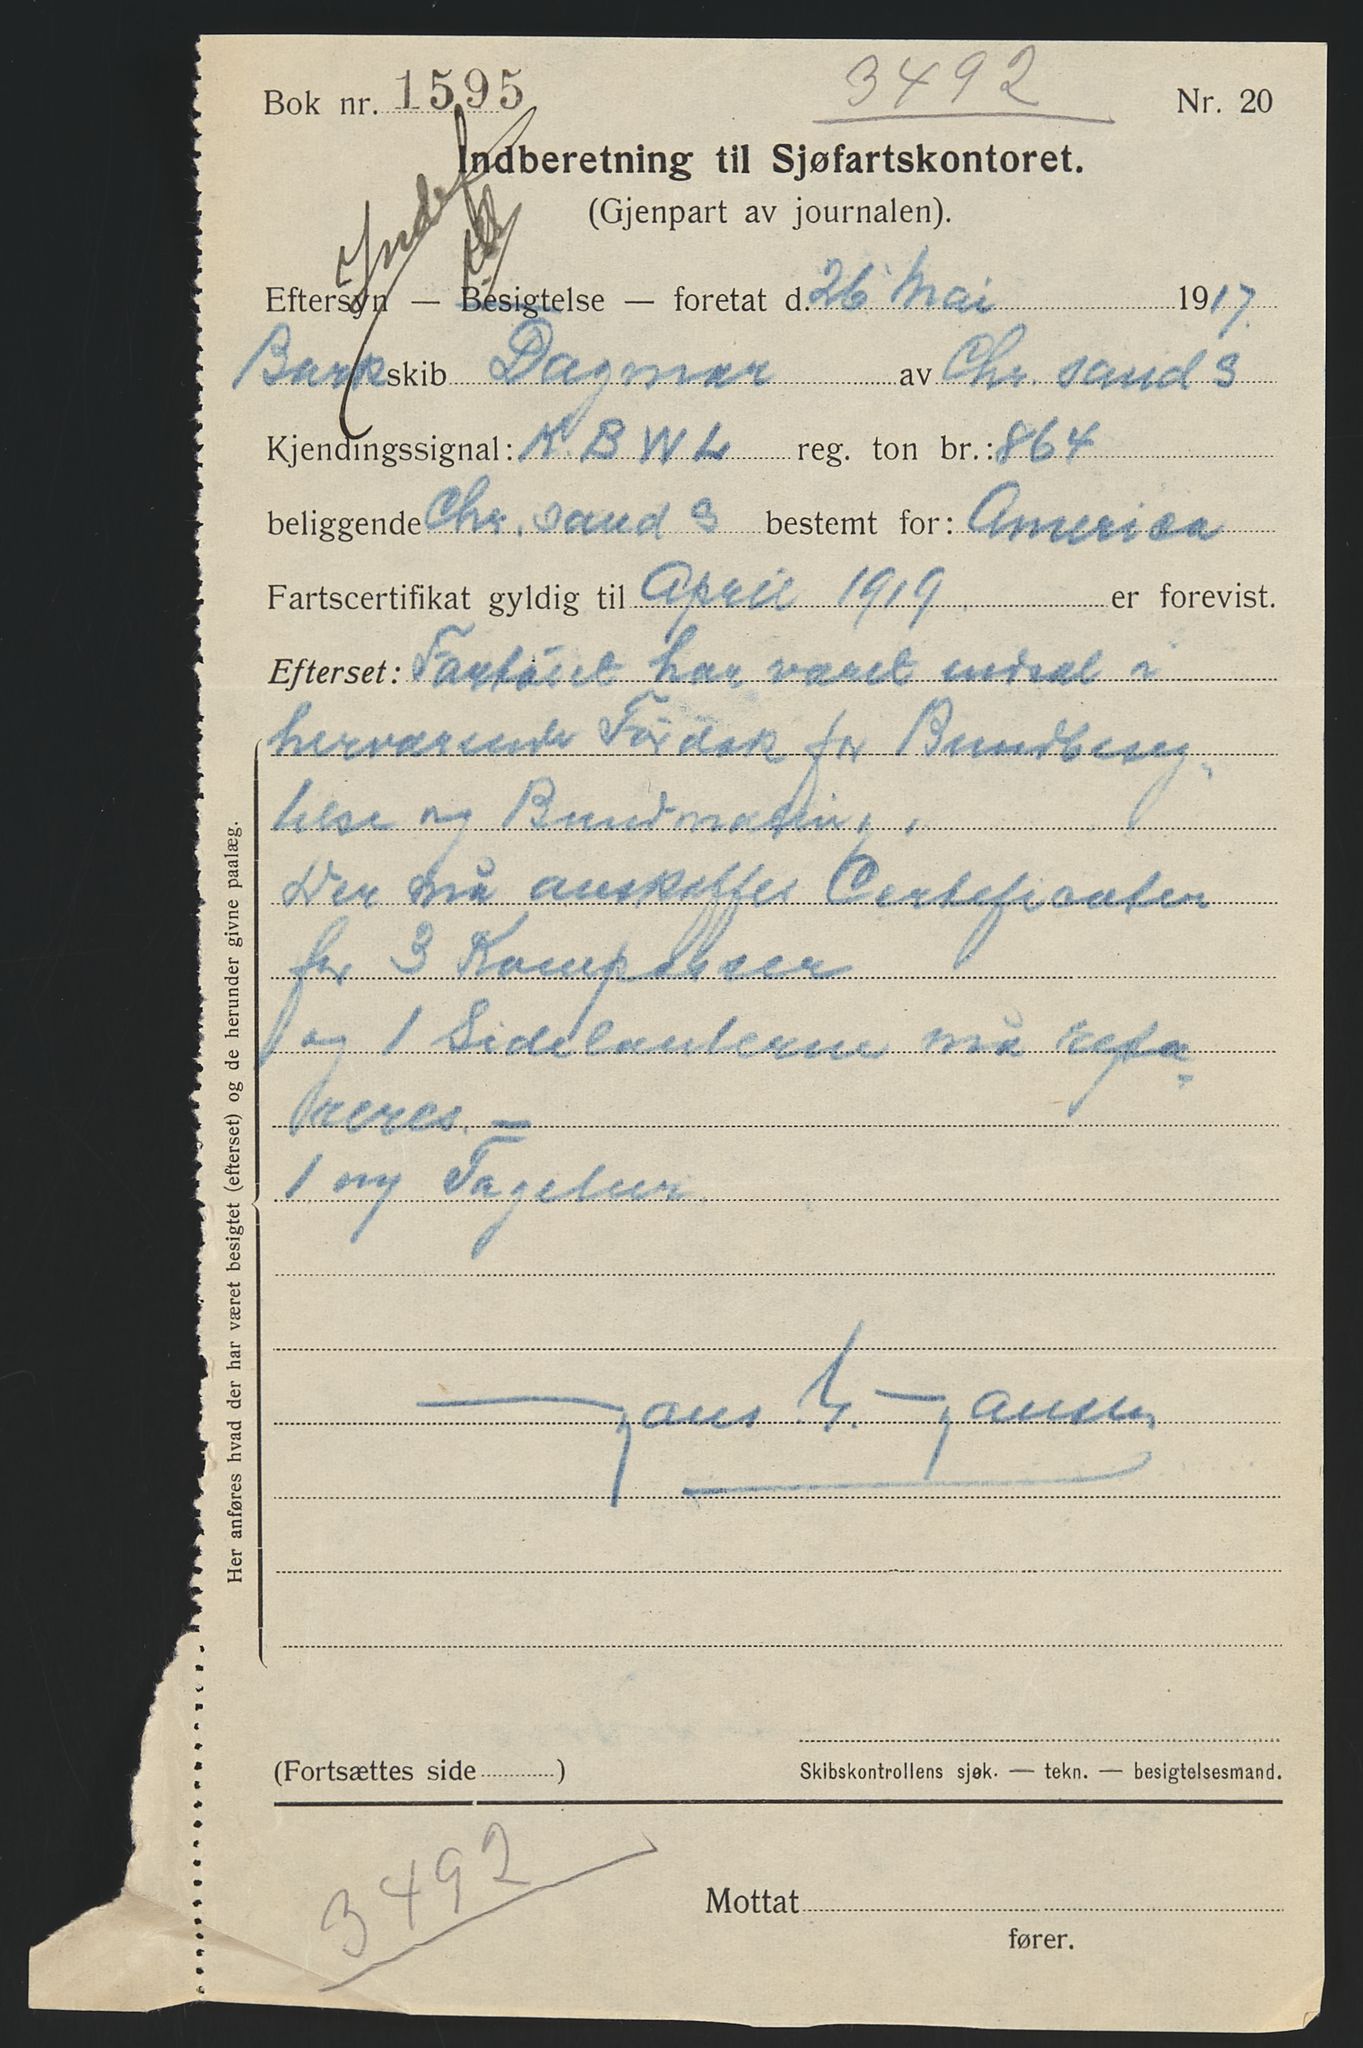 Bok nr. 1595
3492
Nr. 20
Indberetning til Sjøfartskontoret.
(Gjenpart av journalen).
Indf
Eftersyn — Besigtelse — foretat d. 26 Mai 1917
Barkskib Dagmar av Chr. sand S
Kjendingssignal: K. B W L reg. ton br.: 864
beliggende Chr. sand S bestemt for: America
Fartscertifikat gyldig til April 1919 er forevist.
Efterset: Fartöiet har været indsat i
herværende Tördok for Bundbesig-
telse og
Der må anskaffes Certeficater
for 3 Kompasser
og 1 Sidelanterne må repa-
reres. —
1 ny Tågelur
Jans L. Jansen
Her anføres hvad der har været besigtet (efterset) og de herunder givne paalæg.
(Fortsættes side )
Skibskontrollens sjøk. — tekn. — besigtelsesmand.
3492
Mottat
fører.